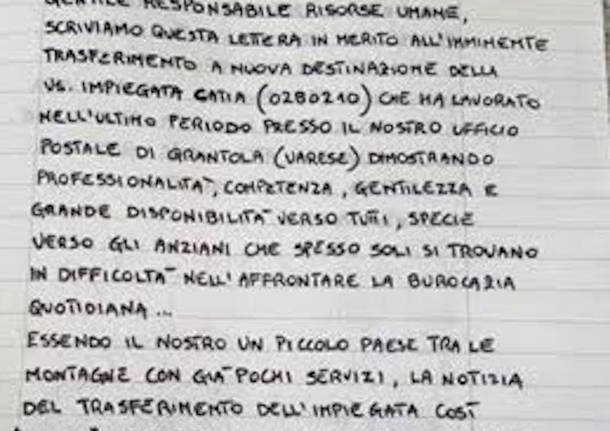 GENTILE RESPONSABILE RISORSE UMANE,
SCRIVIAMO QUESTA LETTERA IN MERITO ALL'IMMINENTE
TRASFERIMENTO A NUOVA DESTINAZIONE DELLA
VS. IMPIEGATA CATIA (0280210) CHE HA LAVORATO
NELL'ULTIMO PERIODO PRESSO IL NOSTRO UFFICIO
POSTALE DI GRANTOLA (VARESE) DIMOSTRANDO
PROFESSIONALITA', COMPETENZA, GENTILEZZA E
GRANDE DISPONIBILITA' VERSO TUTTI, SPECIE
VERSO GLI ANZIANI CHE SPESSO SOLI SI TROVANO
IN DIFFICOLTA' NELL'AFFRONTARE LA BUROCAZIA
QUOTIDIANA...
ESSENDO IL NOSTRO UN PICCOLO PAESE TRA LE
MONTAGNE CON GIA' POCHI SERVIZI, LA NOTIZIA
DEL TRASFERIMENTO DELL'IMPIEGATA COSÌ